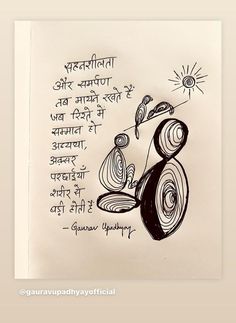 सहनशीलता
और समर्पण
तब मायने रखते हैं
जब रिश्ते में
सम्मान हो
अन्यथा,
अक्सर
परछाईयाँ
शरीर से
बड़ी होती हैं
- Gaurav Upadhyay
@gauravupadhyayofficial